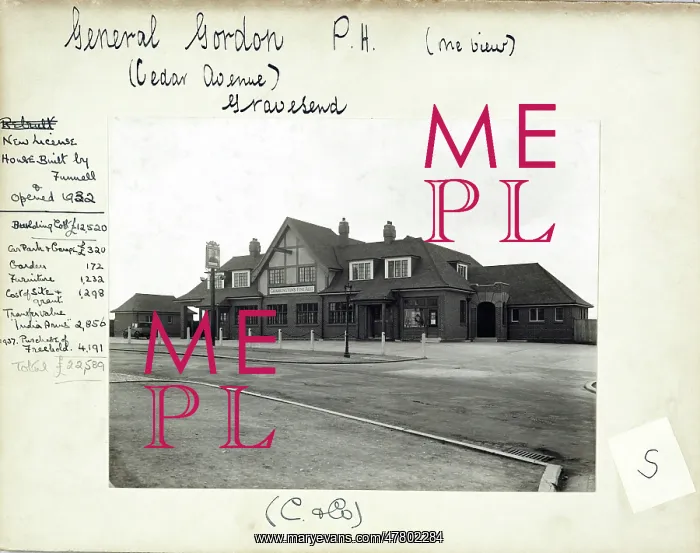 General Gordon P.H. (NE View)
(Cedar Avenue)
Gravesend
Rebuilt
New License
House Built by
Funnell
&
Opened 1932
Building Cost £12,520
Car Park & £320
Garden 172
Furniture 1,232
Cost of Site & 1,298
grant
Transfer value
"India Arms" 2,856
1937. Purchase of
Freehold. 4,191
Total £22,589
ME
PL
ME
PL
S
(C. & Co)
www.maryevans.com/47802284